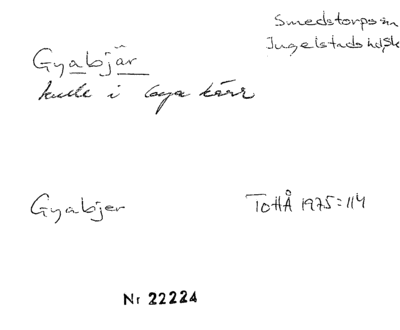 Smedstorps sn
Ingelstads hd, Sk
Gyabjär
kulle i Coya kärr
Gyabjer
ToHÅ 1975:114
Nr 22224